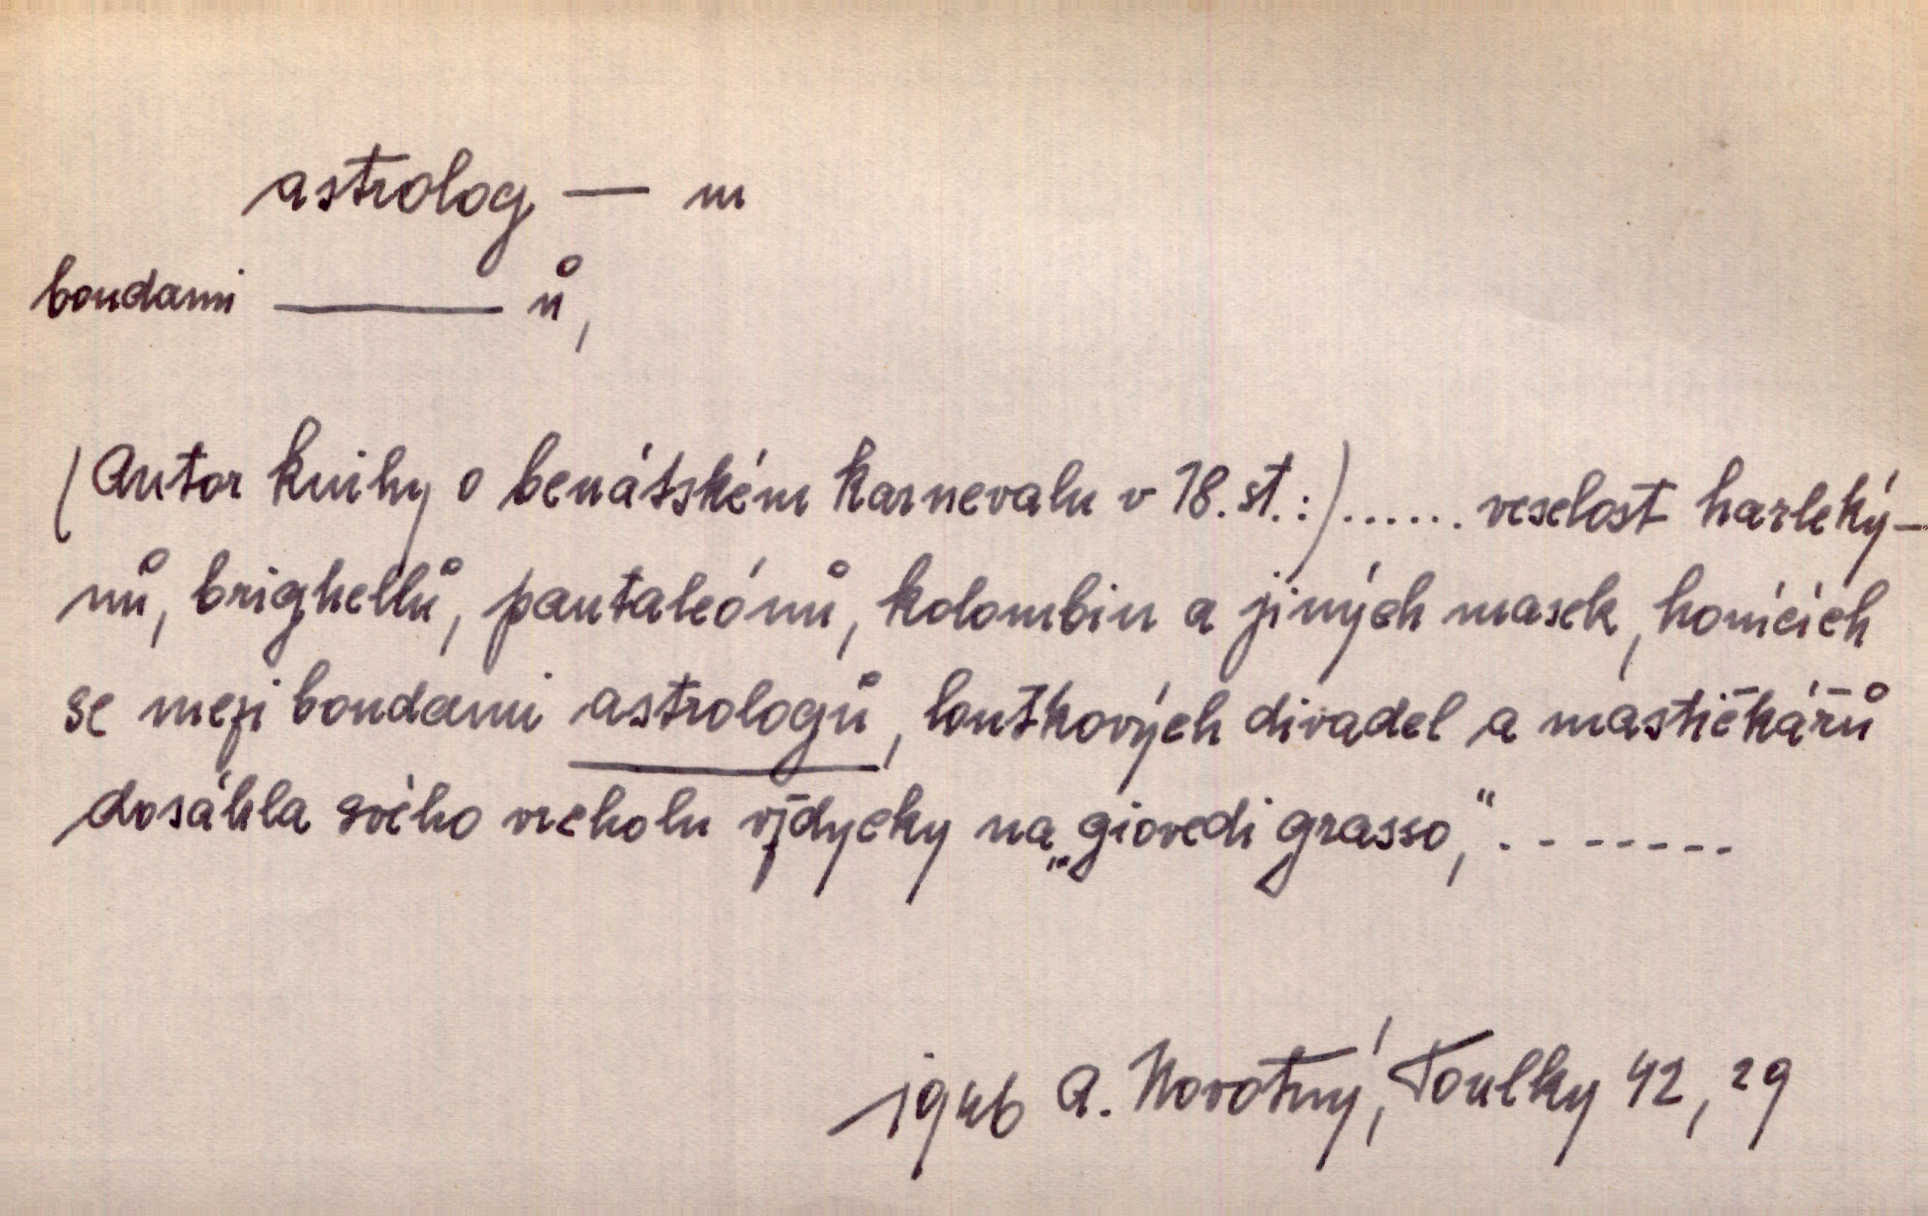 astrolog — m
boudami ——— ů,
(Autor knihy o benátském karnevalu v 18. st.:)...... veselost harleký-
nů, brighellů, pantaleónů, kolombin a jiných masek, honících
se mezi boudami astrologů, loutkových divadel a mastičkářů
dosáhla svého vrcholu vždycky na „giovedi grasso,“.-------
1946 A. Novotný, Toulky 42, 29